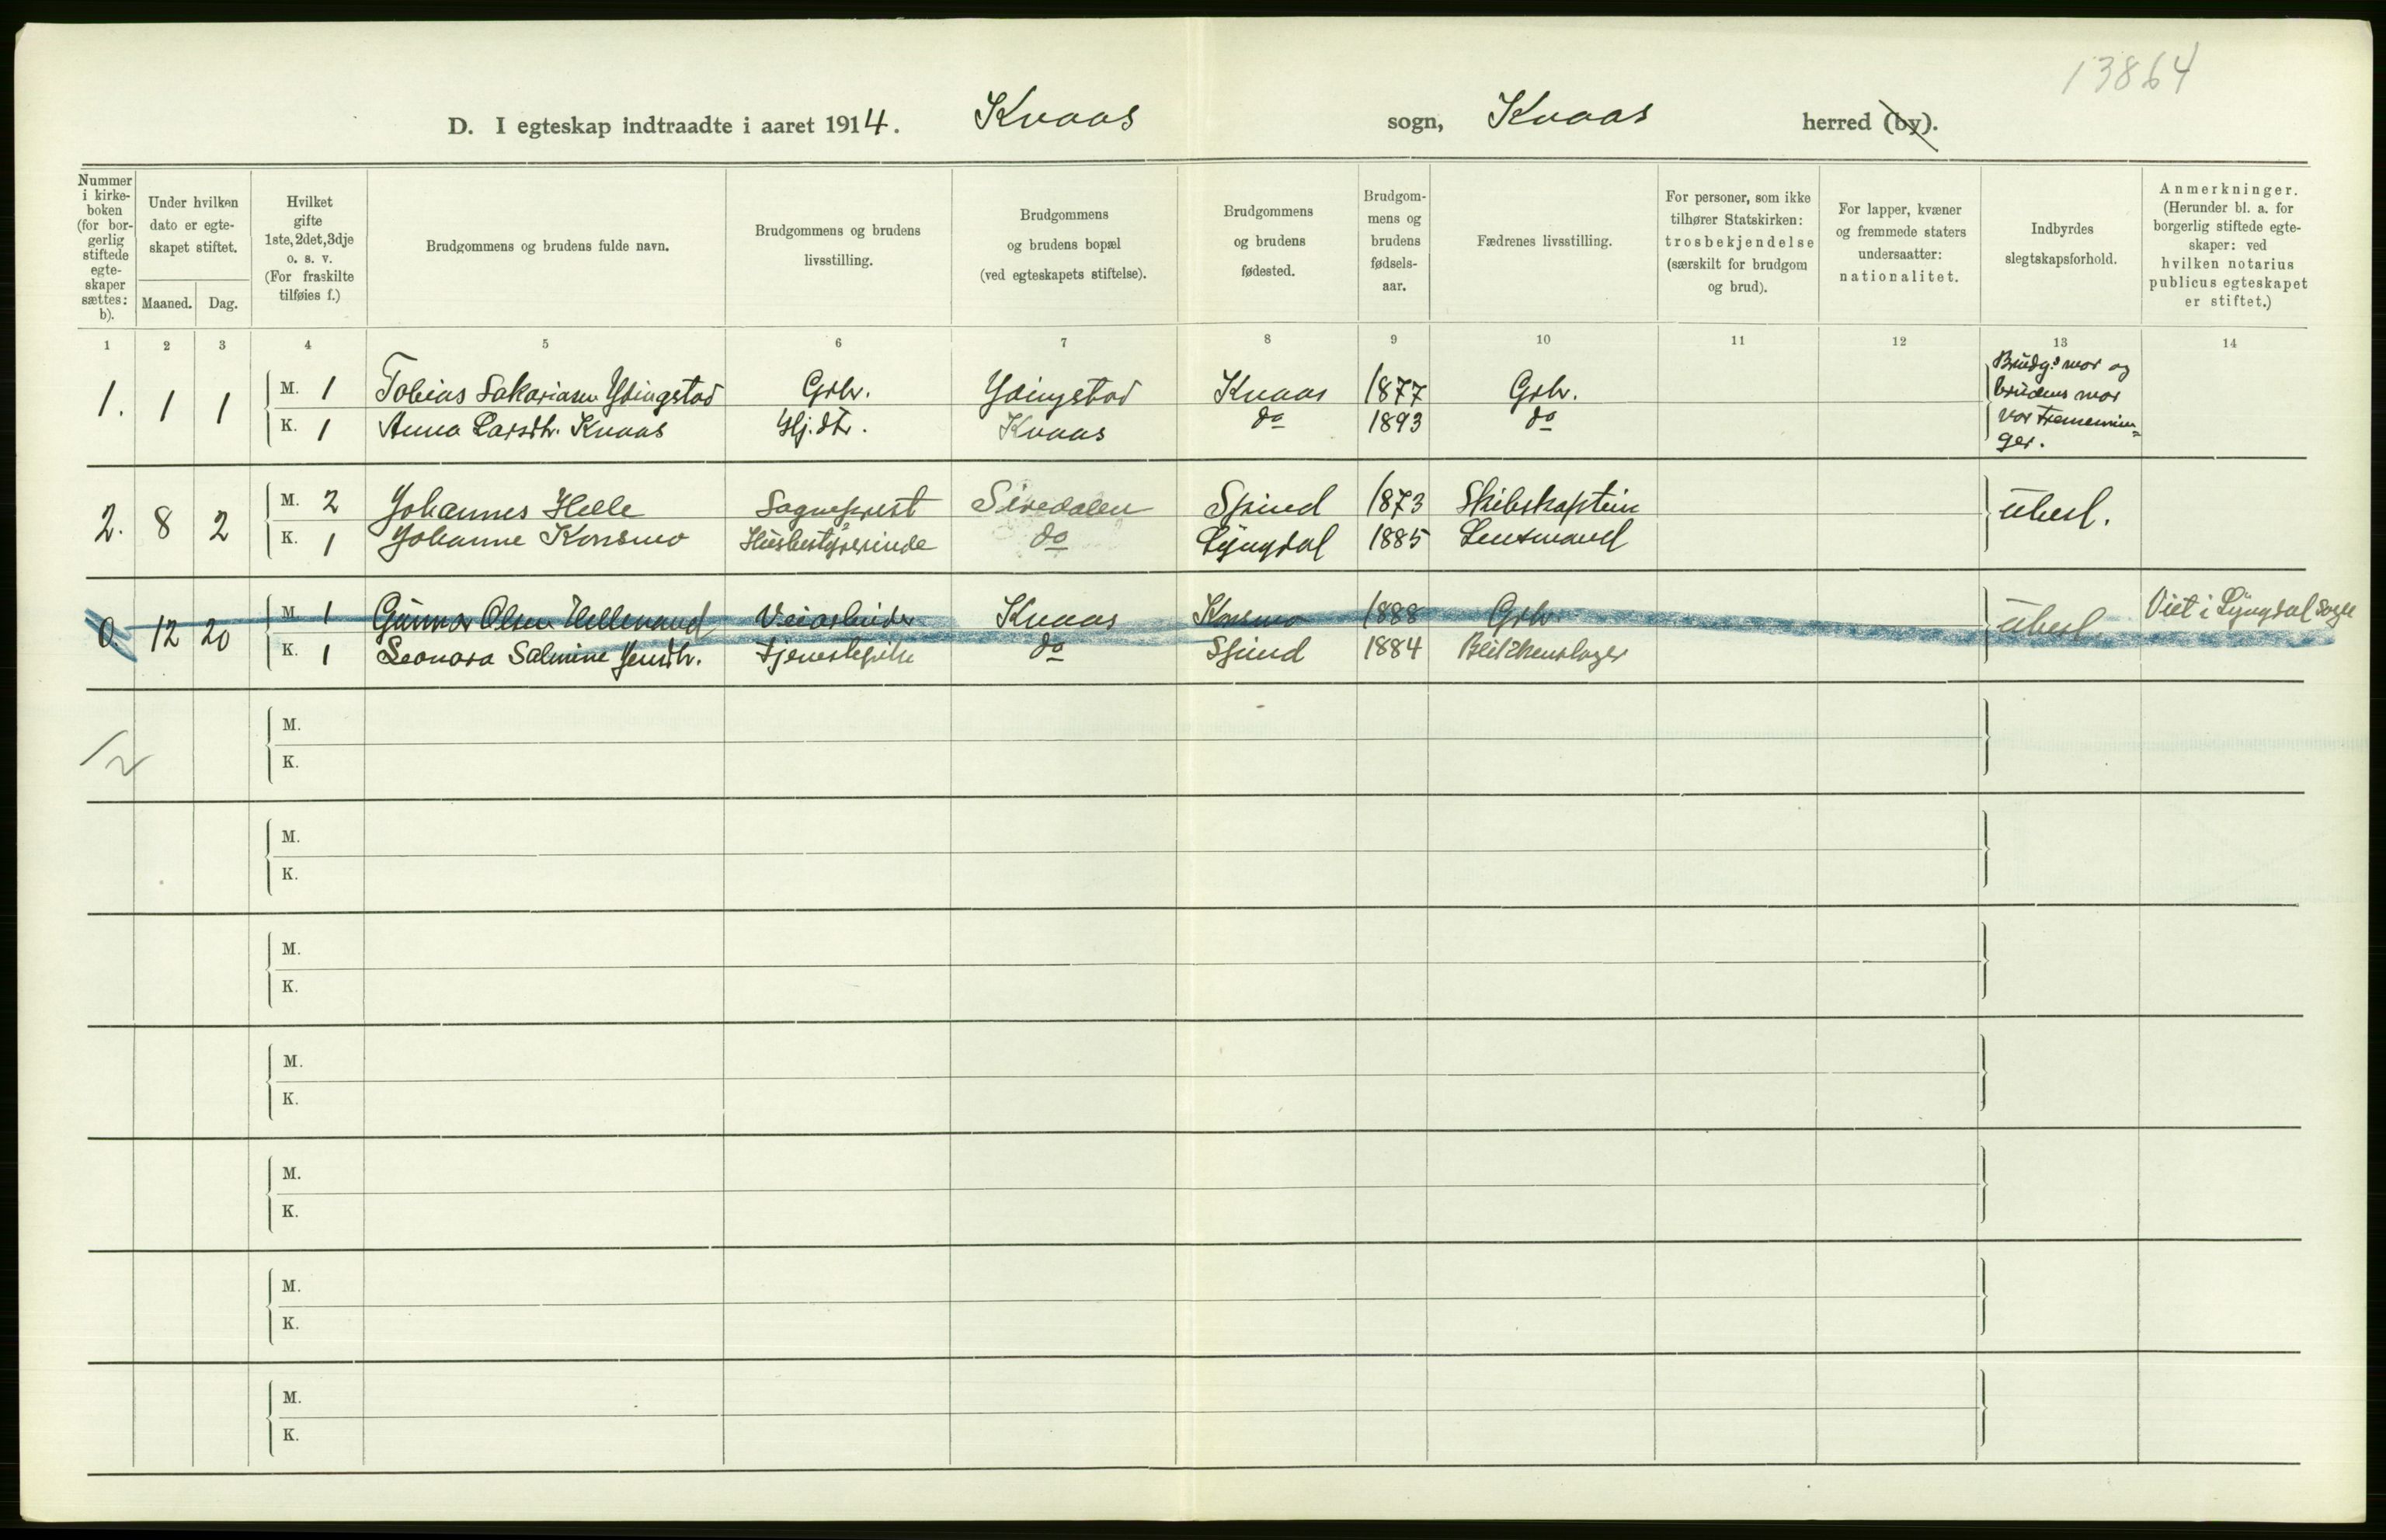 13864
D. I egteskap indtraadte i aaret 1914. Kvaas sogn, Kvaas herred (by).
Nummer i kirke-boken (for bor-gerlig stiftede egte-skaper sættes: b).
Under hvilken dato er egte-skapet stiftet.
Maaned. Dag.
Hvilket gifte 1ste, 2det, 3dje o. s. v. (For fraskilte tilføies f.)
Brudgommens og brudens fulde navn.
Brudgommens og brudens livsstilling.
Brudgommens og brudens bopæl (ved egteskapets stiftelse).
Brudgommens og brudens fødested.
Brudgom-mens og brudens fødsels-aar.
Fædrenes livsstilling.
For personer, som ikke tilhører Statskirken: trosbekjendelse (særskilt for brudgom og brud).
For lapper, kvæner og fremmede staters undersaatter: nationalitet.
Indbyrdes slegtskapsforhold.
Anmerkninger. (Herunder bl. a. for borgerlig stiftede egte-skaper: ved hvilken notarius publicus egteskapet er stiftet.)
1 2 3 4 5 6 7 8 9 10 11 12 13 14
1. 1 1 M. 1 Tobias Sakariasen Ydingstad Grbr. Ydingstad Kvaas 1877 Grbr.
K. 1 Anna Larsdtr. Kvaas Hj. dtr. Kvaas do 1893 do
Brudg.s mor og
brudens mor
var tremennin=
ger.
2. 8 2 M. 2 Johannes Helle Sogneprest Siredalen Spind 1873 Skibskaptein ubesl.
K. 1 Johanne Konsmo Husbestyrerinde do Lyngdal 1885 Lensmand
0. 12 20 M. 1 Gunnar Olsen Hellemand Veiarbeider Kvaas Konsmo 1888 Grbr. ubesl. Viet i Lyngdal sogn
K. 1 Leonora Salmine Jensdtr. Tjenestepike do Spind 1884 Blikkenslager
M.
K.
1/2
M.
K.
M.
K.
M.
K.
M.
K.
M.
K.
M.
K.